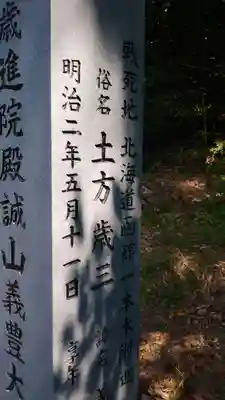 戦死地 北海道函館一本木附近
俗名 土方歳三 諱名
明治二年五月十一日 享年
歳進院殿誠山義豊大